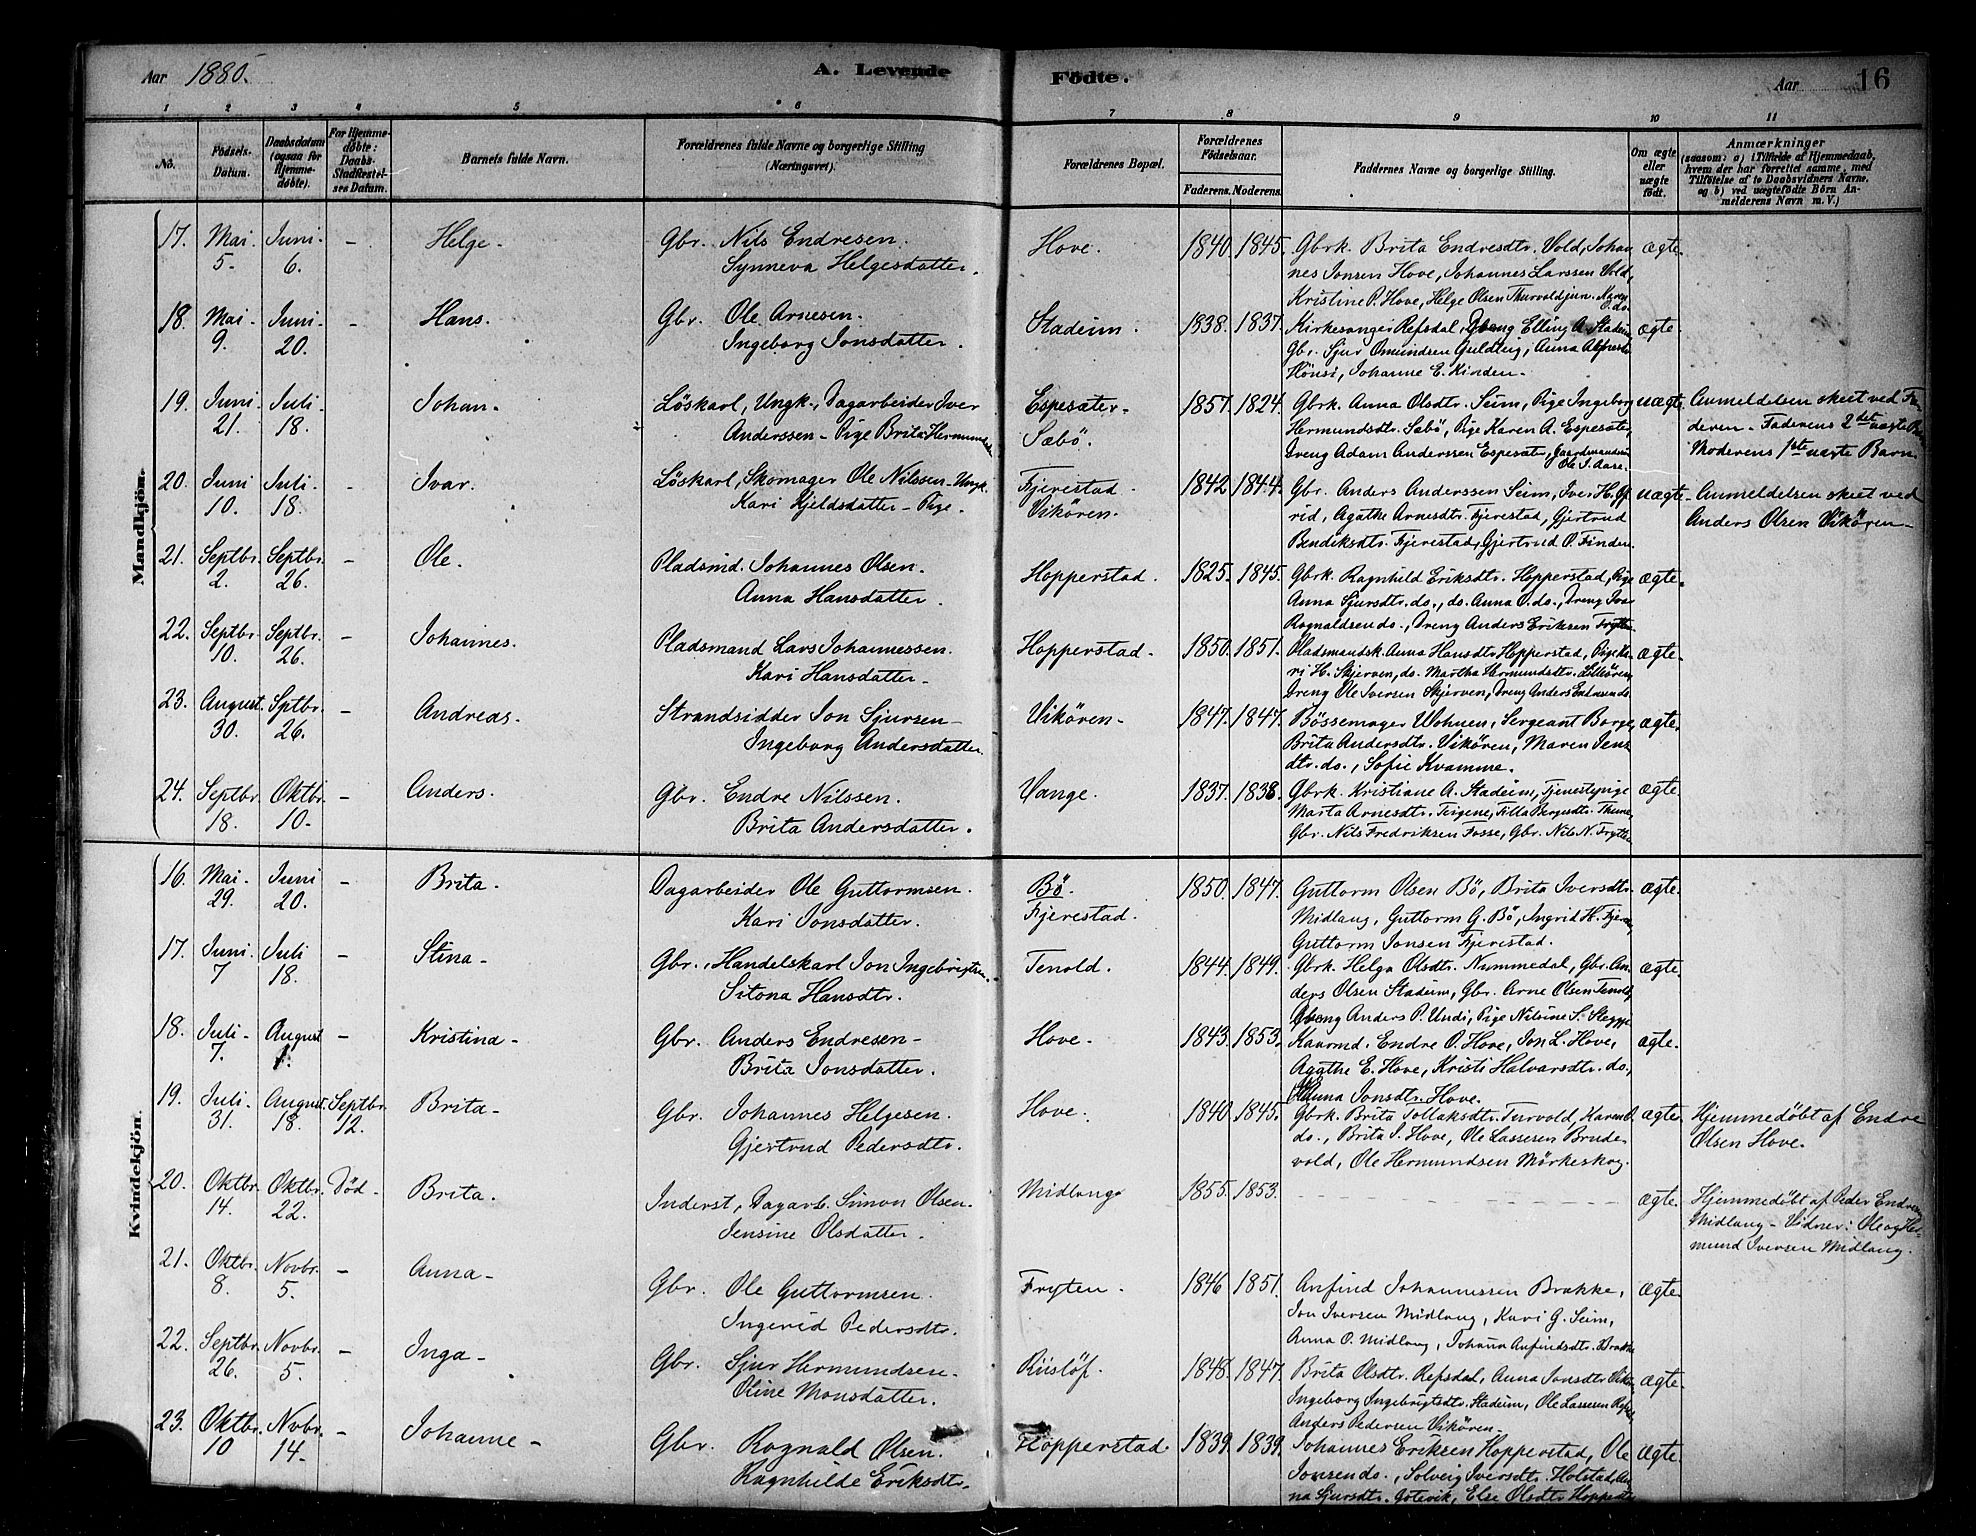 Aar 1880.
A. Levende
Födte.
Aar
16
1 2 3 4 5 6
7 8 9 10 11
No.
Födsels-Datum.
Daabsdatum (ogsaa for Hjemme-døbte).
For Hjemme-døbte: Daabs-Stadfæstel-ses Datum.
Barnets fulde Navn.
Forældrenes fulde Navne og borgerlige Stilling (Næringsvei).
Forældrenes Bopæl.
Forældrenes Fødselsaar.
Faderens. Moderens.
Faddernes Navne og borgerlige Stilling.
Om ægte eller uægte født.
Anmærkninger
(saasom: a) i Tilfælde af Hjemmedaab, hvem der har forrettet samme, med Tilføielse af to Daabsvidners Navne, og b) ved uægtefødte Börn An-melderens Navn m. V.)
Mandkjön.
17. Mai 5. Juni 6. - Helge - Gbr. Nils Endresen. Hove. 1840. 1845. Gbrk. Brita Endresdtr. Vold, Johan ægte.
Synneva Helgesdatter. nes Jonsen Hove, Johannes Larssen Vold,
Kristine P. Hove, Helge Olsen Thurvold jun. Maren O. do.
18. Mai 9. Juni 20. - Hans. Gbr. Ole Arnesen. Stadeim. 1838. 1837. Kirkesanger Refsdal, Dreng Elling A. Stadeim, ægte.
Ingeborg Jonsdatter. Gbr. Sjur Omundsen Guldteig, Anna
Hönsi, Johanne E. Kinden.
19. Juni 21. Juli 18. - Johan. Löskarl, Ungk., Dagarbeider Iver Espesæter. 1857. 1824. Gbrk. Anna Olsdtr. Seim, Pige Ingeborg uægte. Anmeldelsen skeet ved Fa-
Anderssen - Pige Brita Hermunds Sæbö. Hermundsdtr. Sæbö, Pige Karen A. Espesæter, deren - Faderens 2det uægte
Dreng Adam Anderssen Espesæter, Moderens 1ste uægte Barn.
20. Juni 10. Juli 18. - Ivar. Löskarl, Skomager Ole Nilssen - Ungk. Fjerestad. 1842 1844. Gbr. Anders Anderssen Seim, Iver H. uægte - Anmeldelsen skeet ved
Kari Kjeldsdatter - Pige. Vikören. rid, Agathe Arnesdtr. Fjerestad, Gjertrud Anders Olsen Vikören -
Bendiksdtr. Fjerestad, Gjertrud O. Finden.
21. Septbr. 2. Septbr. 26. - Ole. Pladsmd. Johannes Olsen. Hopperstad. 1825. 1845. Gbrk. Ragnhild Eriksdtr. Hopperstad, Pige ægte.
Anna Hansdatter. Anna Sjursdtr. do., do. Anna O. do., Dreng Iva
Ragnaldsen do., Dreng Anders Eriksen
22. Septbr. 10. Septbr. 26. - Johannes. Pladsmand Lars Johannessen. Hopperstad. 1850. 1851. Pladsmandsk. Anna Hansdtr. Hopperstad, Pige Ka- ægte.
Kari Hansdatter - ri H. Skjerven, do. Martha Hermundsdtr.
Dreng Ole Iversen Skjerven, Dreng Anders
23. August. 30. Sptbr. 26. - Andreas. Strandsidder Jon Sjursen - Vikören - 1847. 1847. Bössemager Wohnen, Sergeant Borge, ægte.
Ingeborg Andersdatter. Brita Andersdtr. Vikören, Maren Jens
dtr. do., Sofie Kvamme.
24. Septbr. 18. Oktbr. 10. - Anders. Gbr. Endre Nilssen. Vange. 1837. 1838. Gbrk. Kristiane A. Stadeim, Tjenestepige ægte.
Brita Andersdatter. Marta Arnesdtr.
Gbr. Nils Fredriksen Fosse, Gbr. Nils N.
Kvindekjön.
16. Mai. 29. Juni 20. - Brita. Dagarbeider Ole Guttormsen. Bö. 1850. 1847. Guttorm Olsen Bö, Brita Iversdtr. ægte.
Kari Jonsdatter. Fjerestad. Midlang, Guttorm G. Bö, Ingrid H.
Guttorm Jonsen Fjerestad.
17. Juni. 7 Juli 18. - Stina - Gbr., Handelskarl Jon Ingebrigtsen. Tenold. 1844. 1849. Gbrk. Helga Olsdtr. Nummedal, Gbr. An- ægte.
Sitona Hansdtr. ders Olsen Stadeim, Gbr. Arne Olsen Tenold,
Dreng Anders P. Undi, Pige Nilsine S.
18. Juli 7. August 1. - Kristina - Gbr. Anders Endresen - Hove - 1843. 1853. Kaarmd. Endre O. Hove, Jon L. Hove, ægte.
Brita Jonsdatter. Agathe E. Hove, Kristi Halvarsdtr. do.,
Anna Jonsdtr. Hove.
19. Juli. 31. August. 18. Septbr. 12. Brita - Gbr. Johannes Helgesen. Hove. 1840. 1845. Gbrk. Brita Tollaksdtr. Turvold, Karen O. ægte. Hjemmedöbt af Endre
Gjertrud Pedersdtr. do., Brita J. Hove, Ole Lassesen Brude- Olsen Hove.
vold, Ole Hermundsen Mörkeskog.
20. Oktbr. 14. Oktbr. 22. Död - Brita. Inderst, Dagarb. Simon Olsen. Midlang 1855. 1853. ægte. Hjemmedöbt af Peder
Jensine Olsdatter. Midlang - Vidner: Ole og Her-
mund Iversen Midlang.
21. Oktbr. 8. Novbr. 5. - Anna - Gbr. Ole Guttormsen. Frytten. 1846 1851. Anfind Johannessen Brække, ægte.
Ingerid Pedersdtr. Jon Iversen Midlang, Kari G. Seim,
Anna O. Midlang, Johana Anfindsdtr. Brække
22. Septbr. 26. Novbr. 5. - Inga - Gbr. Sjur Hermundsen. Riislöf. 1848. 1847. Brita Olsdtr. Refsdal, Anna Jonsdtr. ægte.
Oline Monsdatter. Ingeborg Ingebrigtsdtr. Stadeim, Ole Lassesen
Anders Pedersen Vikören.
23. Oktbr. 10 Novbr. 14. - Johanne - Gbr. Ragnald Olsen. Hopperstad. 1839. 1839. Johannes Eriksen Hopperstad, Ole ægte.
Ragnhilde Eriksdtr. Jonsen do., Solveig Iversdtr. Holstad, An-
na Sjursdtr. , Else Olsdtr.